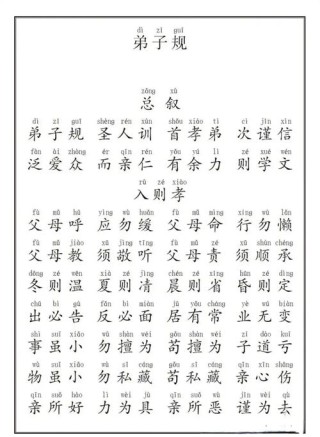 dì zǐ guī
弟子规
zǒng xù
总叙
dì zǐ guī shèng rén xùn shǒu xiào tì cì jǐn xìn
弟子规 圣人训 首孝弟 次谨信
fàn ài zhòng ér qīn rén yǒu yú lì zé xué wén
泛爱众 而亲仁 有余力 则学文
rù zé xiào
入则孝
fù mǔ hū yìng wù huǎn fù mǔ mìng xíng wù lǎn
父母呼 应勿缓 父母命 行勿懒
fù mǔ jiào xū jìng tīng fù mǔ zé xū shùn chéng
父母教 须敬听 父母责 须顺承
dōng zé wēn xià zé jìng chén zé xǐng hūn zé dìng
冬则温 夏则凊 晨则省 昏则定
chū bì gù fǎn bì miàn jū yǒu cháng yè wú biàn
出必告 反必面 居有常 业无变
shì suī xiǎo wù shàn wéi gǒu shàn wéi zǐ dào kuī
事虽小 勿擅为 苟擅为 子道亏
wù suī xiǎo wù sī cáng gǒu sī cáng qīn xīn shāng
物虽小 勿私藏 苟私藏 亲心伤
qīn suǒ hào lì wèi jù qīn suǒ wù jǐn wèi qù
亲所好 力为具 亲所恶 谨为去